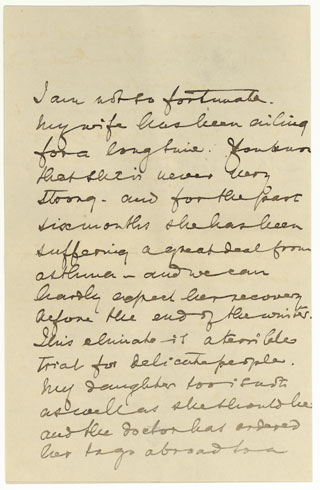 I am not so fortunate.
My wife has been ailing
for a long time. You know
that she is never very
strong - and for the past
six months she has been
suffering a great deal from
asthma - and we can
hardly expect her recovery
before the end of the winter.
This climate is a terrible
trial for delicate people.
My daughter too is not
as well as she should be
and the doctor has ordered
her to go abroad to a